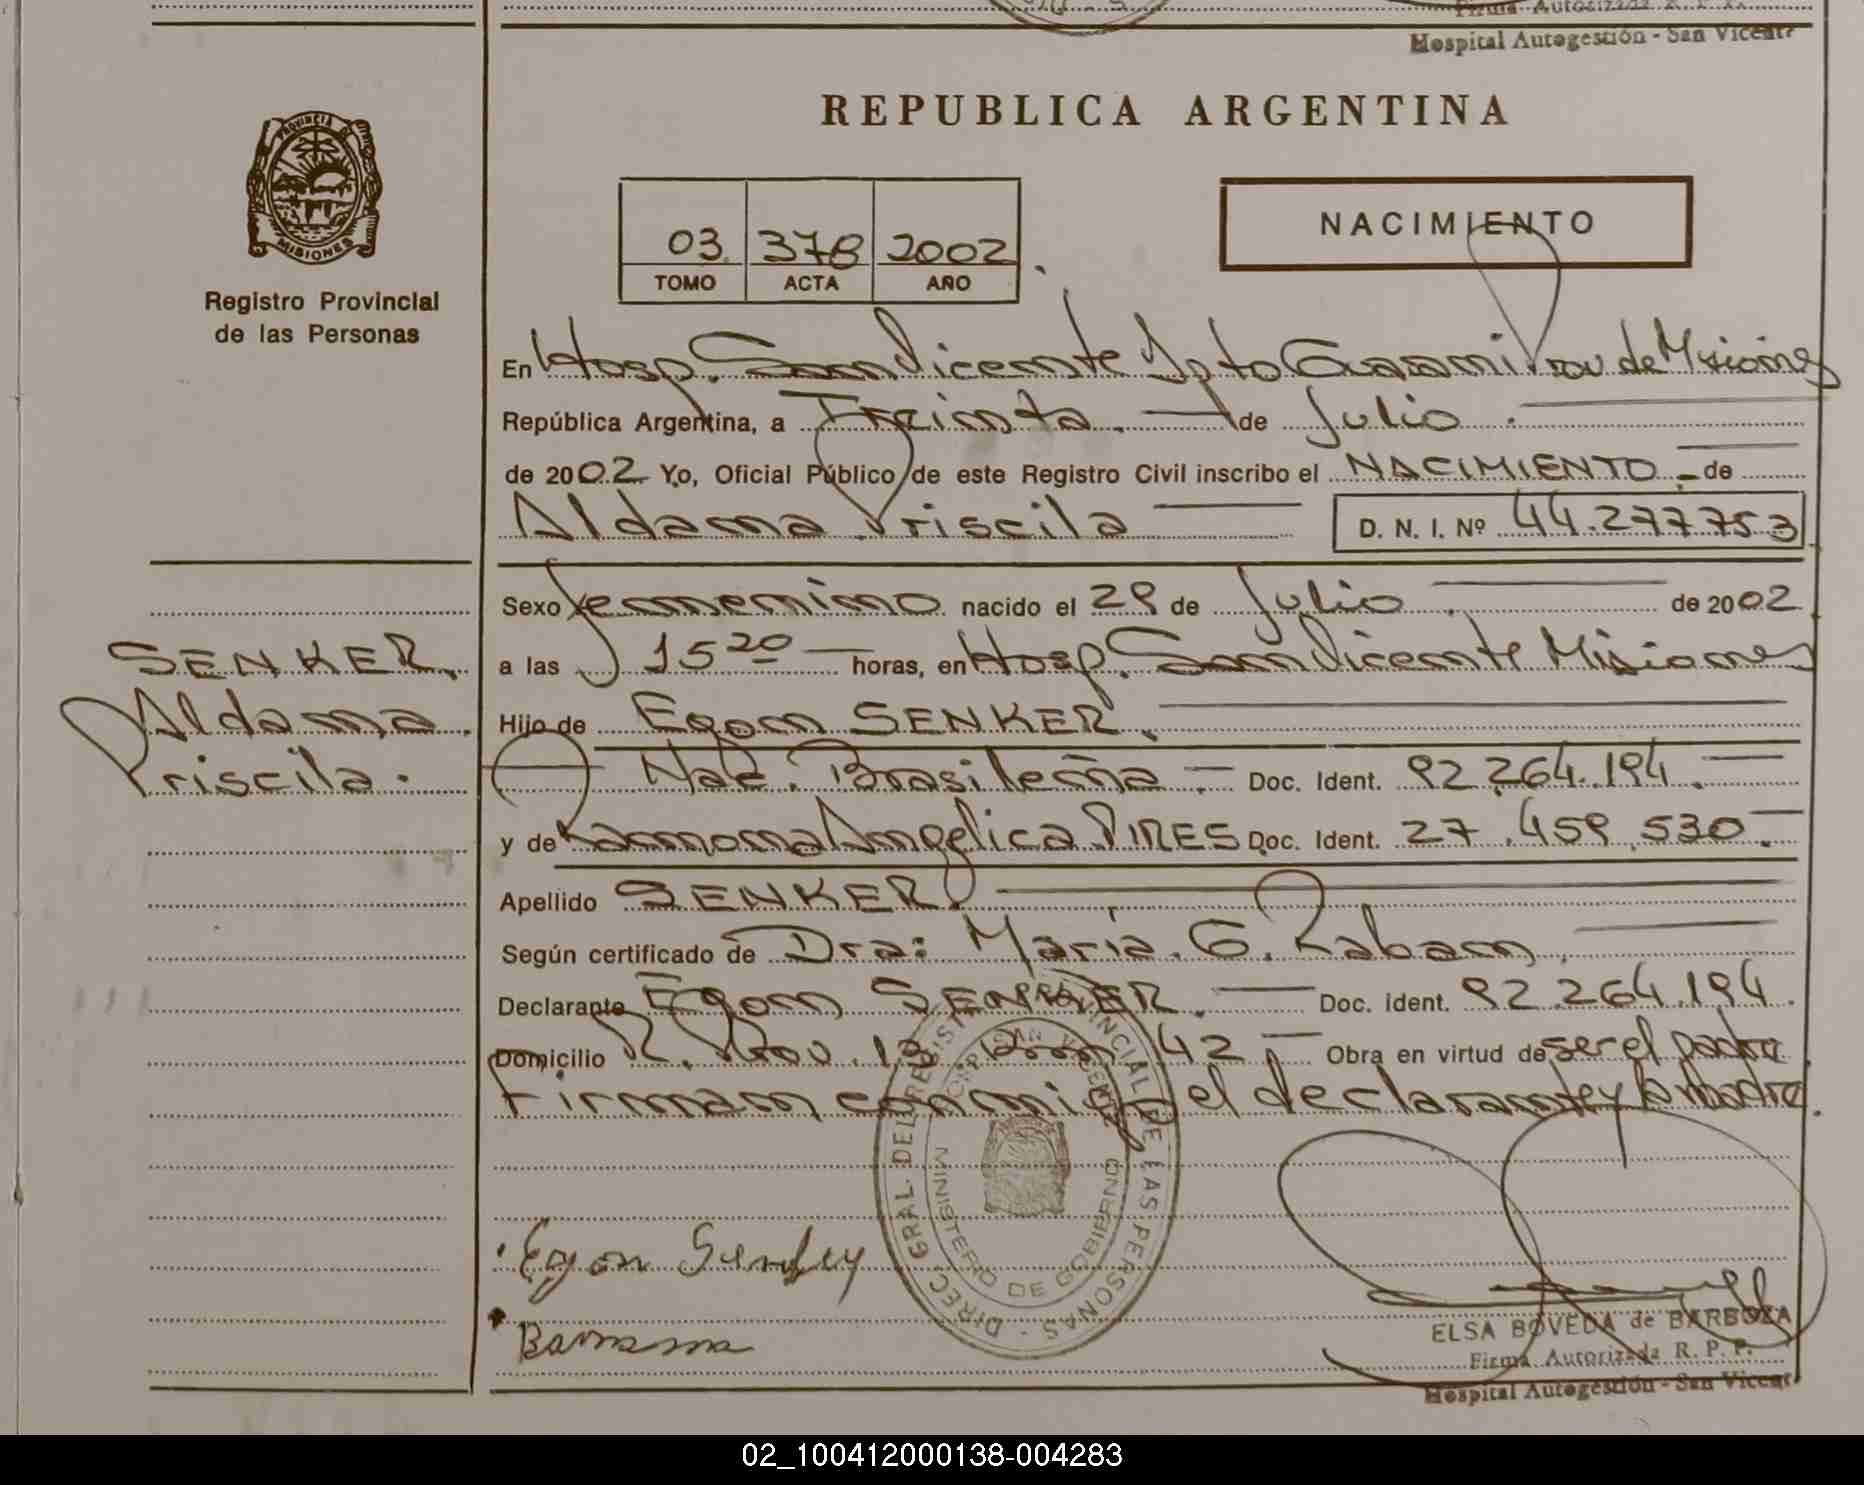 Firma Autorizada R. P. P.
Hospital Autogestión - San Vicente
REPUBLICA ARGENTINA
PROVINCIA DE
MISIONES
Registro Provincial
de las Personas
03. 378 2002
TOMO ACTA AÑO
NACIMIENTO
En Hosp. San Vicente Dpto Guarani Prov de Misiones
República Argentina, a Treinta. de Julio.
de 2002 Yo, Oficial Público de este Registro Civil inscribo el NACIMIENTO de
Aldana Priscila D. N. I. Nº 44.277.753
Sexo femenino nacido el 29 de Julio. de 2002
a las 15 20 horas, en Hosp. San Vicente Misiones
SENKER.
Aldana.
Priscila.
Hijo de Egon SENKER.
Nac. Brasileña. Doc. Ident. 92.264.194.
y de Ramona Angelica PIRES Doc. Ident. 27.459.530.
Apellido SENKER.
Según certificado de Dra: María. G. Raban.
Declarante Egon SENKER. Doc. ident. 92.264.194.
Domicilio R. Prov. 13 42 Obra en virtud de ser el padre
Firman conmigo el declarante y la madre.
DIREC. GRAL. DEL REGIST. PROVINCIAL DE LAS PERSONAS -
HOSP. SAN VICENTE
MINISTERIO DE GOBIERNO
Egon
ELSA BOVEDA de BARBOZA
Firma Autorizada R. P. P.
Hospital Autogestión - San Vicente
02_100412000138-004283